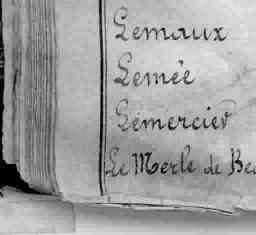 Lemaux
Lemée
Lemercier
Le Merle de